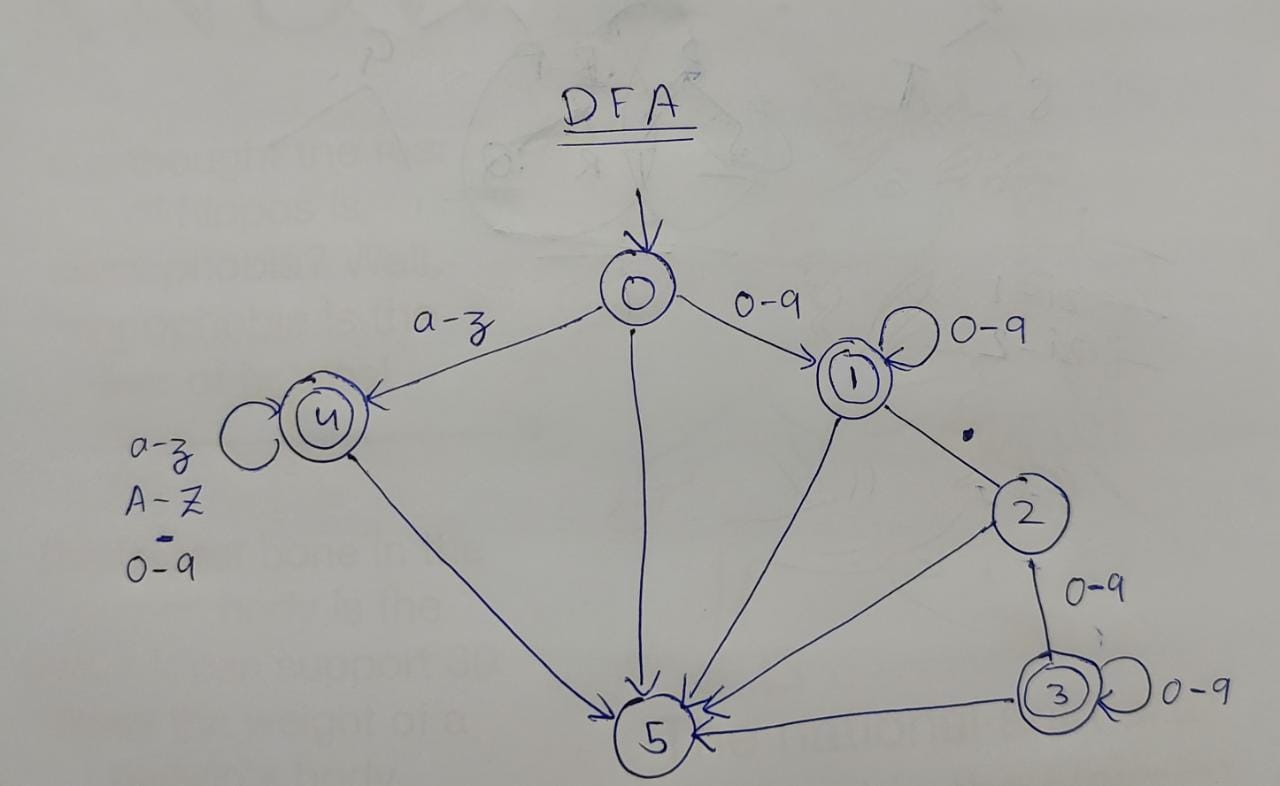 DFA
0
0-9
a-z
1
0-9
4
.
a-z
A-Z
-
0-9
2
0-9
3
0-9
5